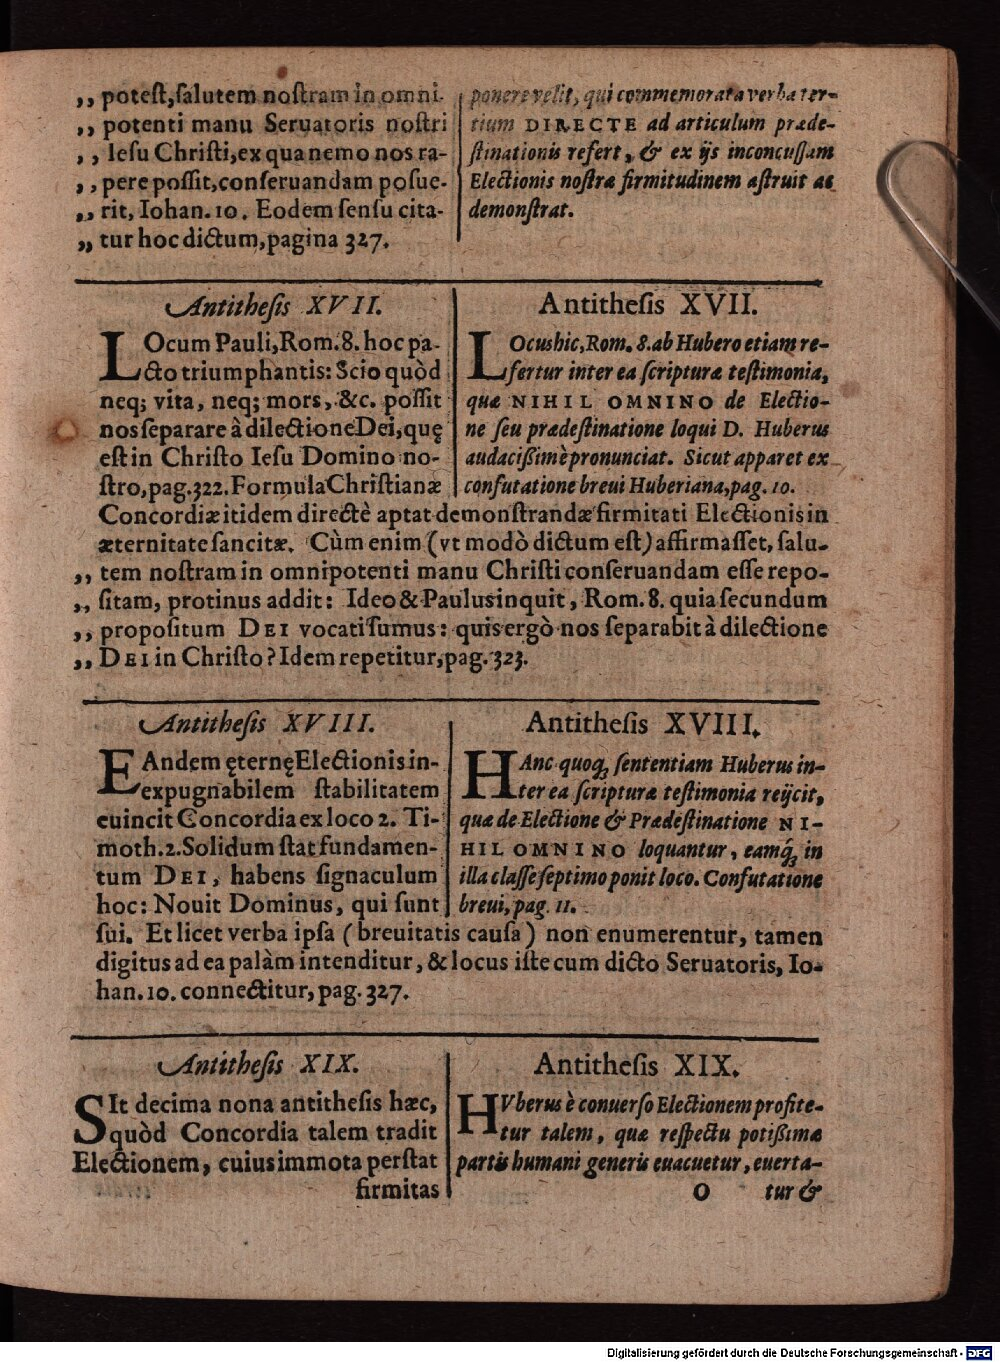 ,, potest, salutem nostram in omni-
,, potenti manu Seruatoris nostri
,, Iesu Christi, ex qua nemo nos ra-
,, pere possit, conseruandam posue-
,, rit, Iohan. 10. Eodem sensu cita-
,, tur hoc dictum, pagina 327.
ponere velit, qui commemorata verba ter-
tium DIRECTE ad articulum præde-
stinationis refert, & ex ijs inconcussam
Electionis nostræ firmitudinem astruit ac
demonstrat.
Antithesis XVII.
LOcum Pauli, Rom. 8. hoc pa-
cto triumphantis: Scio quòd
neq; vita, neq; mors, &c. possit
nos separare à dilectione Dei, quę
est in Christo Iesu Domino no-
stro, pag. 322. Formula Christianæ
Antithesis XVII.
LOcus hic, Rom. 8. ab Hubero etiam re-
fertur inter ea scripturæ testimonia,
quæ NIHIL OMNINO de Electio-
ne seu prædestinatione loqui D. Huberus
audacißimè pronunciat. Sicut apparet ex
confutatione breui Huberiana, pag. 10.
Concordiæ itidem directè aptat demonstrandæ firmitati Electionis in
æternitate sancitæ. Cùm enim (vt modò dictum est) affirmasset, salu-
,, tem nostram in omnipotenti manu Christi conseruandam esse repo-
,, sitam, protinus addit: Ideo & Paulus inquit, Rom. 8. quia secundum
,, propositum DEI vocati sumus: quis ergò nos separabit à dilectione
,, DEI in Christo? Idem repetitur, pag. 323.
Antithesis XVIII.
EAndem ęternę Electionis in-
expugnabilem stabilitatem
euincit Concordia ex loco 2. Ti-
moth. 2. Solidum stat fundamen-
tum DEI, habens signaculum
hoc: Nouit Dominus, qui sunt
Antithesis XVIII.
HAnc quoq; sententiam Huberus in-
ter ea scripturæ testimonia reijcit,
quæ de Electione & Prædestinatione NI-
HIL OMNINO loquantur, eamq́; in
illa classe septimo ponit loco. Confutatione
breui, pag. 11.
sui. Et licet verba ipsa (breuitatis causa) non enumerentur, tamen
digitus ad ea palàm intenditur, & locus iste cum dicto Seruatoris, Io-
han. 10. connectitur, pag. 327.
Antithesis XIX.
SIt decima nona antithesis hæc,
quòd Concordia talem tradit
Electionem, cuius immota perstat
firmitas
Antithesis XIX.
HVberus è conuerso Electionem profite-
tur talem, quæ respectu potißimæ
partis humani generis euacuetur, euerta-
O tur &
Digitalisierung gefördert durch die Deutsche Forschungsgemeinschaft - DFG